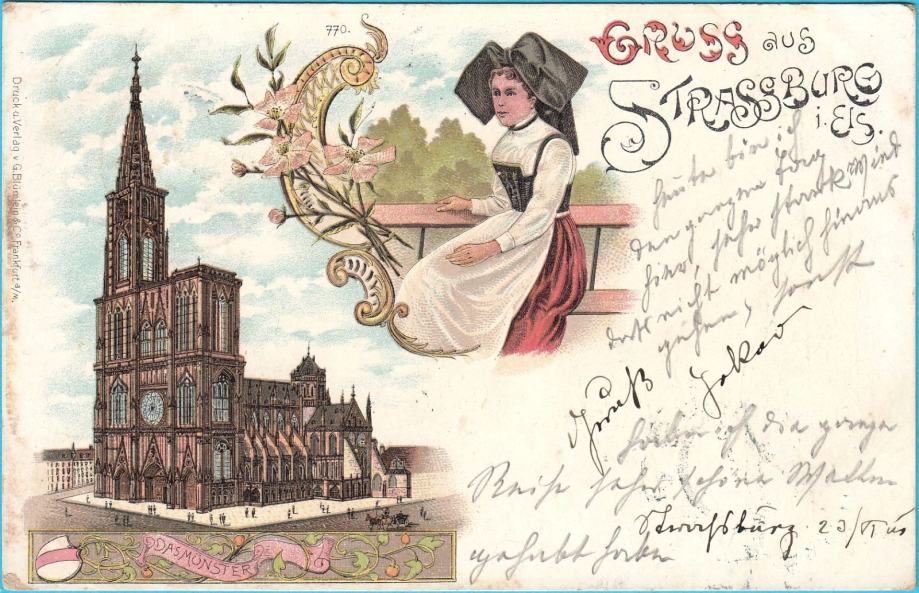 770.
GRUSS aus
STRASSBURG
i. Els.
Druck u. Verlag v. G. Blümlein & Co. Frankfurt a/M.
Heute bin ich
den ganzen Tag
hier, sehr stark Wind
daß nicht möglich hinaus
gehen, sonst
Gruß
die ganze
Reise sehr schöne
gehabt haben
Strassburg 23/VI
DAS MÜNSTER